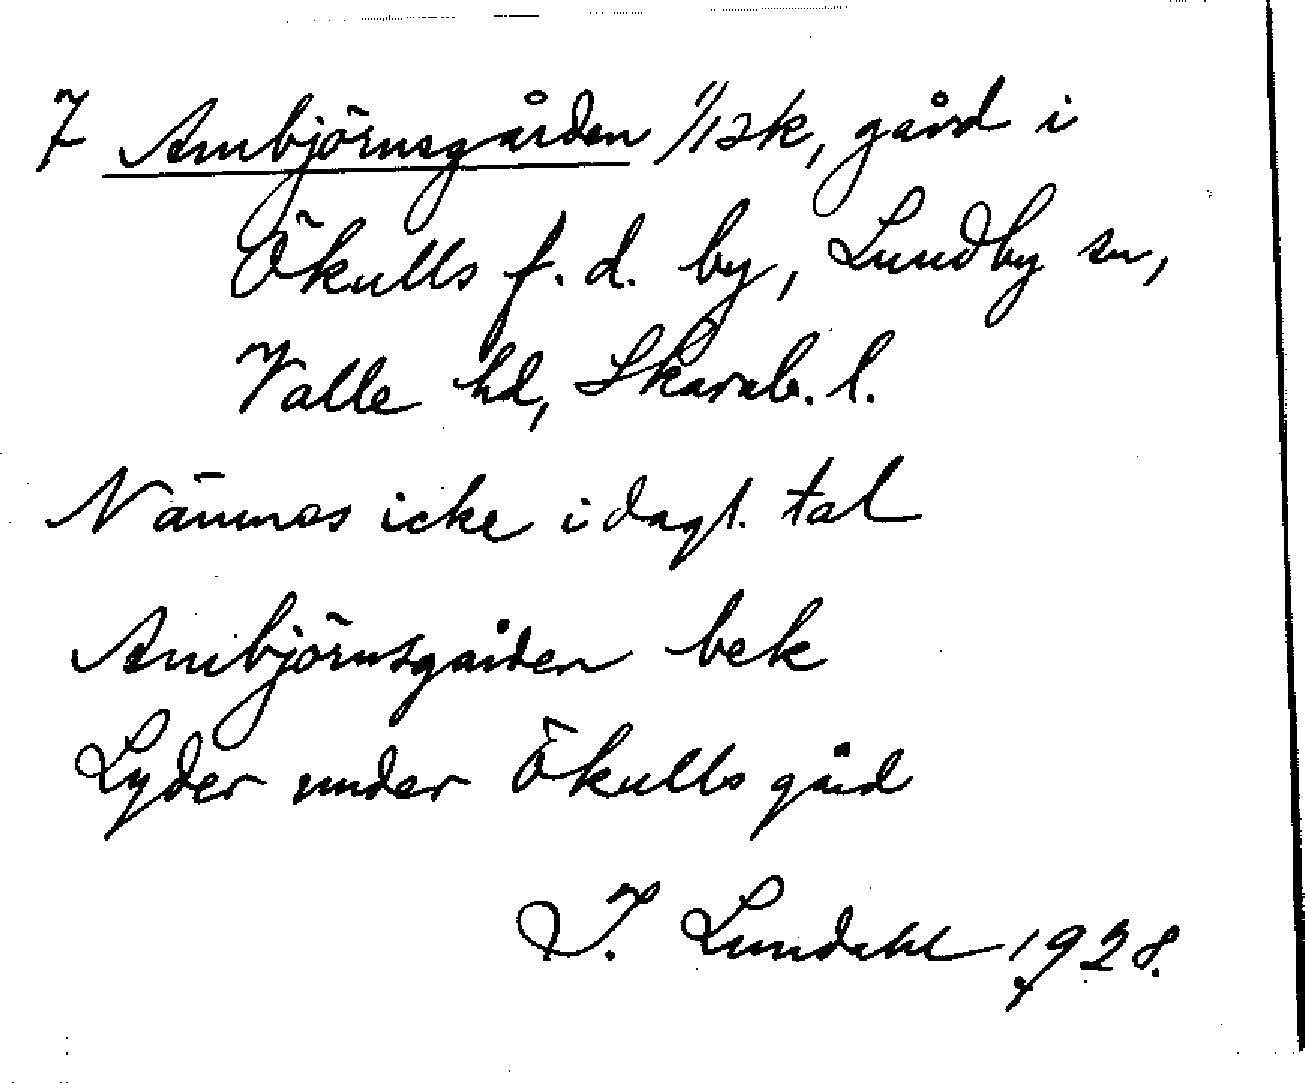 7 Ambjörnsgården 1/12k, gård i
Ökulls f.d. by, Lundby sn,
Valle hd, Skarab.l.
Nämnes icke i dagl. tal
Ambjörnsgården bek
Lyder under Ökulls gård
I. Lundahl 1928.